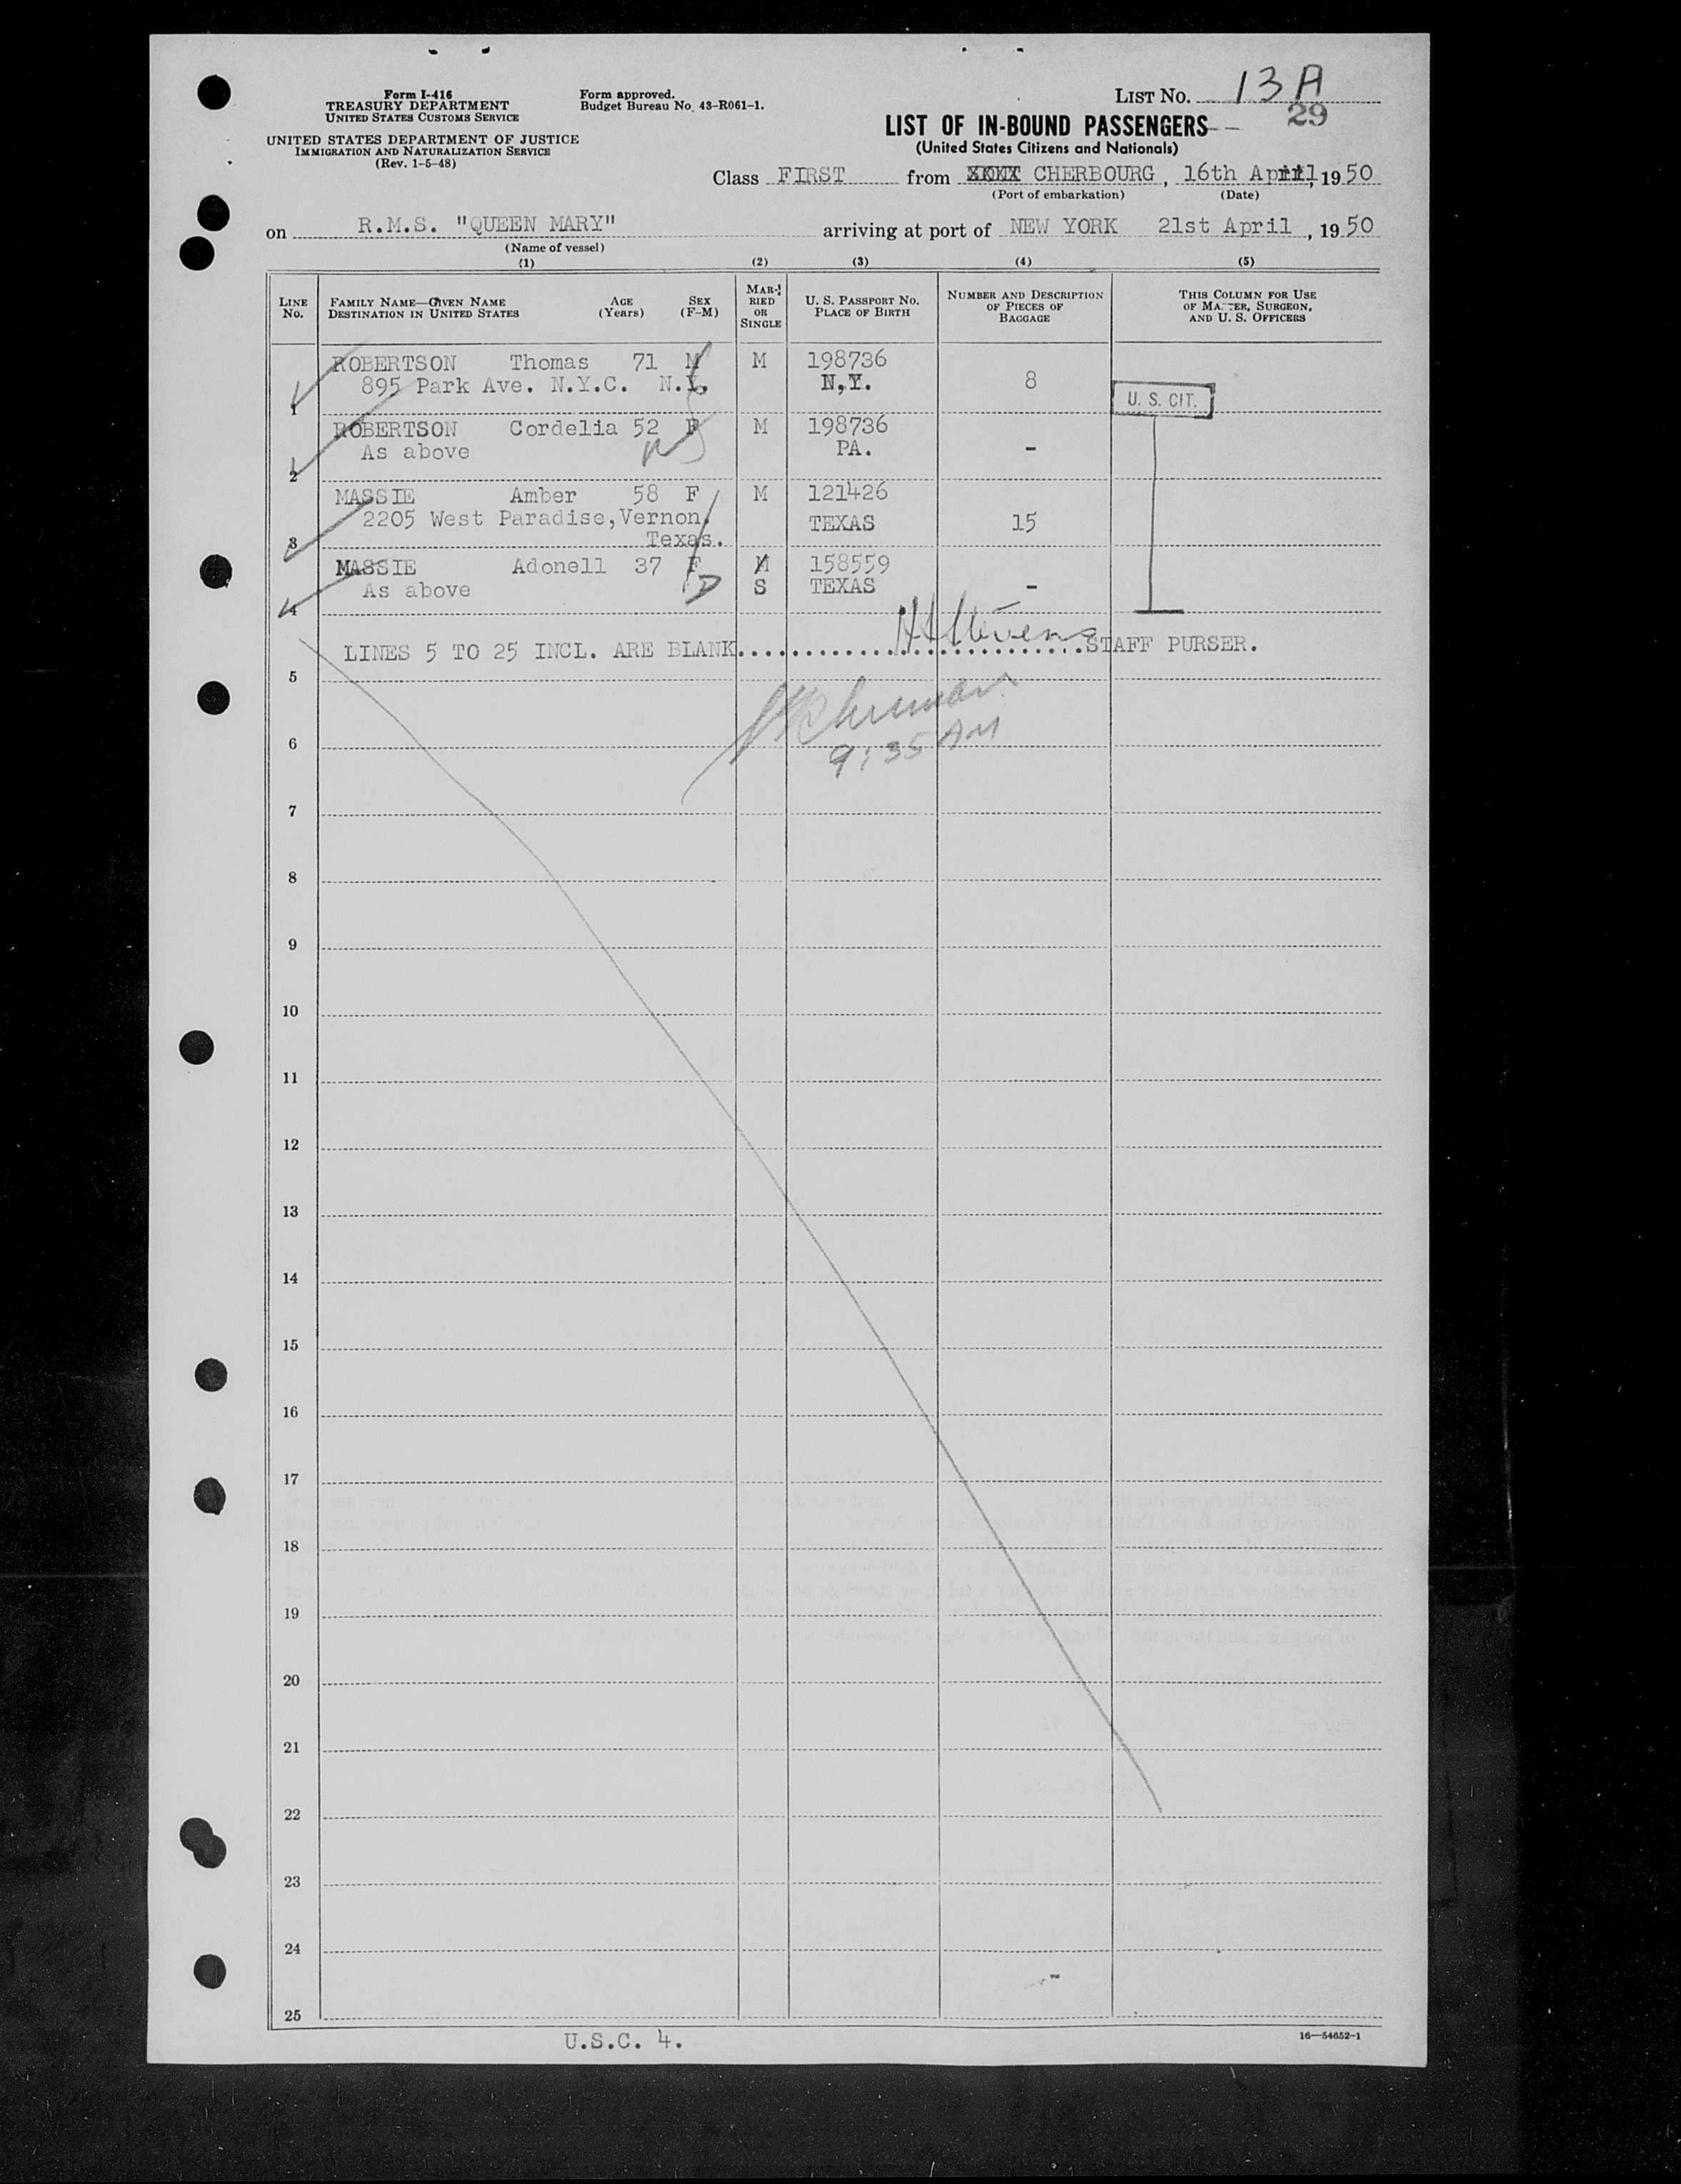 Form I-416
TREASURY DEPARTMENT
UNITED STATES CUSTOMS SERVICE
UNITED STATES DEPARTMENT OF JUSTICE
IMMIGRATION AND NATURALIZATION SERVICE
(Rev. 1-5-48)
Form approved.
Budget Bureau No. 43-R061-1.
LIST NO. 13 A
29
LIST OF IN-BOUND PASSENGERS
(United States Citizens and Nationals)
Class FIRST from CHERBOURG, 16th April, 1950
(Port of embarkation) (Date)
on R.M.S. "QUEEN MARY" arriving at port of NEW YORK 21st April, 1950
(Name of vessel)
(1) (2) (3) (4) (5)
LINE NO. FAMILY NAME—GIVEN NAME AGE (Years) SEX (F-M) DESTINATION IN UNITED STATES MARRIED OR SINGLE U. S. PASSPORT NO. PLACE OF BIRTH NUMBER AND DESCRIPTION OF PIECES OF BAGGAGE THIS COLUMN FOR USE OF MASTER, SURGEON, AND U. S. OFFICERS
ROBERTSON Thomas 71 M M 198736
895 Park Ave. N.Y.C. N.Y. N.Y. 8
1 U. S. CIT.
ROBERTSON Cordelia 52 F M 198736
As above PA. -
2
MASSIE Amber 58 F M 121426
2205 West Paradise, Vernon, TEXAS 15
3 Texas.
MASSIE Adonell 37 F M 158559
As above S TEXAS -
4
LINES 5 TO 25 INCL. ARE BLANK.......... Stevens STAFF PURSER.
5
6
9:35 AM
7
8
9
10
11
12
13
14
15
16
17
18
19
20
21
22
23
24
25
U.S.C. 4.
16—54652-1